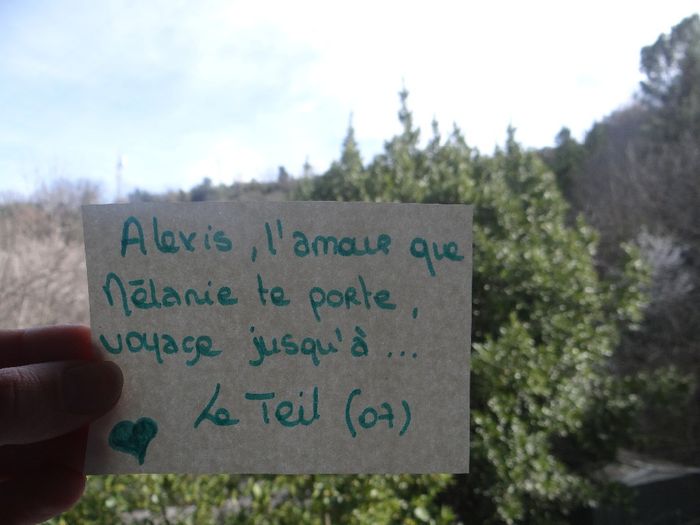 Alexis, l'amour que
Mélanie te porte,
voyage jusqu'à...
Le Teil (07)